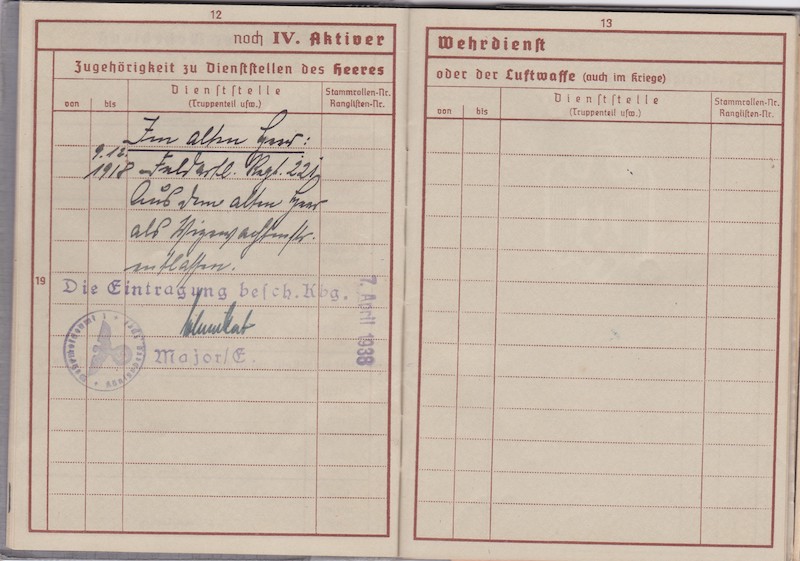 12
noch IV. Aktiver
Zugehörigkeit zu Dienststellen des Heeres
von bis
Dienststelle
(Truppenteil usw.)
Stammrollen-Nr.
Ranglisten-Nr.
Im alten Heer:
9.12.
1918 Feldartl. Regt. 221,
Aus dem alten Heer
als Vizewachtmstr.
entlassen.
19
Die Eintragung besch. Kbg.
7. April 1938
Major/E.
13
Wehrdienst
oder der Luftwaffe (auch im Kriege)
von bis
Dienststelle
(Truppenteil usw.)
Stammrollen-Nr.
Ranglisten-Nr.